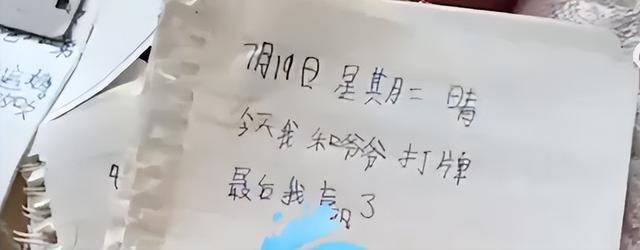 7月19日 星期二 晴
今天我和爷爷打牌
最后我赢了
9